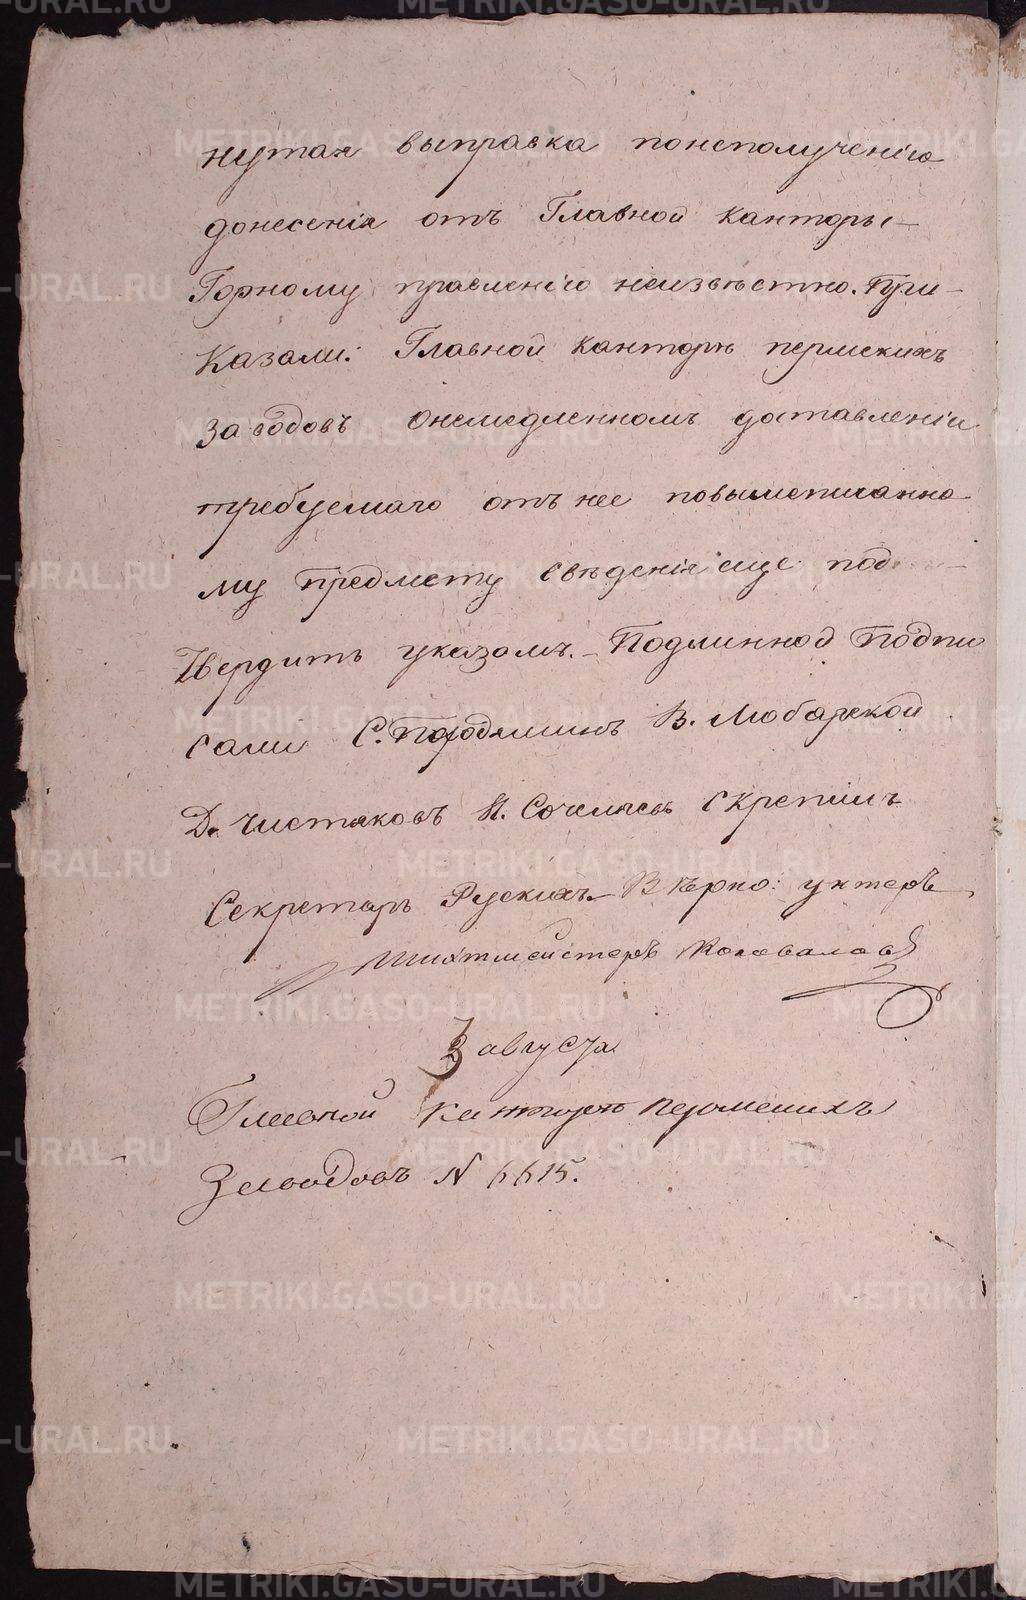 нутая выправка понеполученію
донесенія отъ Главной канторы
Горному правленію неизвѣстно. При-
казали: Главной канторѣ пермскихъ
заводовъ онемедленномъ доставленіи
требуемаго отъ нее повышеписанно-
му предмету свѣденія еще под-
твердить указомъ. Подлинной Подпи
сали С. В. Любарской
Д. Чистяковъ И. скрепилъ
Секретарь Рускихъ. Вѣрно: унтеръ
Шихтмейстеръ Коновалов
3 августа
Главной канторѣ Пермскихъ
Заводовъ N 6615.
METRIKI.GASO-URAL.RU